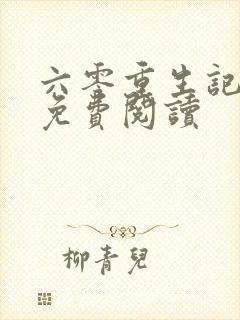 六零重生記
免費閱讀
柳青兒